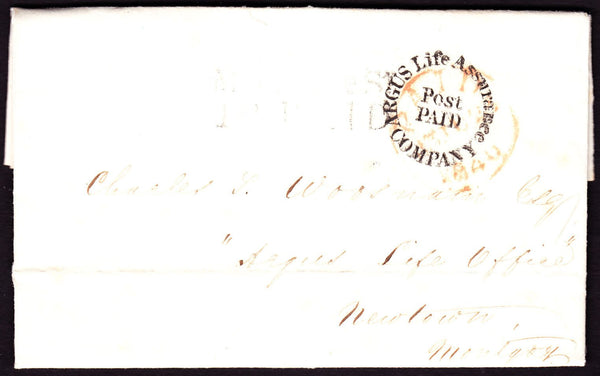 ARGUS Life Assurance COMPANY
Post
PAID
PAID
1840
Charles T. Woosnam Esq
"Argus Life Office"
Newtown,
Montgoy